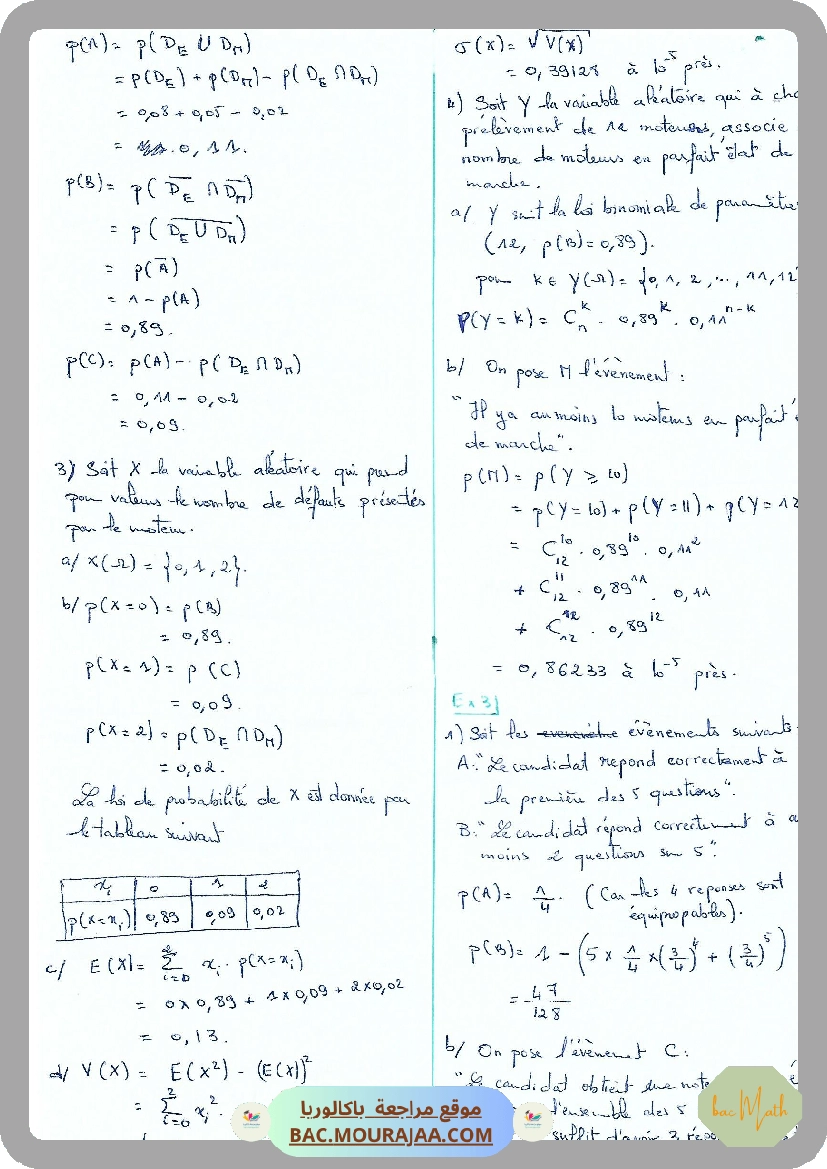 p(A) = p(D_E ∪ D_M)
= p(D_E) + p(D_M) - p(D_E ∩ D_M)
= 0,08 + 0,05 - 0,02
= 0,11.
p(B) = p(\overline{D_E} ∩ \overline{D_M})
= p(\overline{D_E ∪ D_M})
= p(\overline{A})
= 1 - p(A)
= 0,89.
p(C) = p(A) - p(D_E ∩ D_M)
= 0,11 - 0,02
= 0,09.
3) Soit X la variable aléatoire qui prend
pour valeurs le nombre de défauts présentés
par le moteur.
a/ X(Ω) = {0, 1, 2}.
b/ p(X=0) = p(B)
= 0,89.
p(X=1) = p(C)
= 0,09.
p(X=2) = p(D_E ∩ D_M)
= 0,02.
La loi de probabilité de X est donnée par
le tableau suivant
x_i 0 1 2
p(X=x_i) 0,89 0,09 0,02
c/ E(X) = \sum_{i=0}^{2} x_i . p(X=x_i)
= 0×0,89 + 1×0,09 + 2×0,02
= 0,13.
d/ V(X) = E(X²) - (E(X))²
= \sum_{i=0}^{2} x_i² .
σ(X) = √V(X)
= 0,39128 à 10^{-5} près.
4) Soit Y la variable aléatoire qui à cha
prélèvement de 12 moteurs, associe
nombre de moteurs en parfait état de
marche.
a/ Y suit la loi binomiale de paramètre
(12, p(B) = 0,89).
pour k ∈ Y(Ω) = {0, 1, 2, ..., 11, 12
P(Y=k) = C_n^k . 0,89^k . 0,11^{n-k}
b/ On pose M l'évènement :
"Il y a au moins 10 moteurs en parfait
de marche".
p(M) = p(Y ⩾ 10)
= p(Y=10) + p(Y=11) + p(Y=12
= C_{12}^{10} . 0,89^{10} . 0,11²
+ C_{12}^{11} . 0,89^{11} . 0,11
+ C_{12}^{12} . 0,89^{12}
= 0,86233 à 10^{-5} près.
Ex 3
1) Soit les évènements suivants
A: "Le candidat repond correctement à
la première des 5 questions".
B: "Le candidat répond correctement à a
moins 2 questions sur 5".
p(A) = 1/4. (Car les 4 reponses sont
équipropables).
p(B) = 1 - (5 × 1/4 × (3/4)^4 + (3/4)^5)
= 47/128
b/ On pose l'évènement C:
"Le candidat obtient une note
l'ensemble des 5
suffit d'avoir 3 répo
موقع مراجعة باكالوريا
BAC.MOURAJAA.COM
bac Math